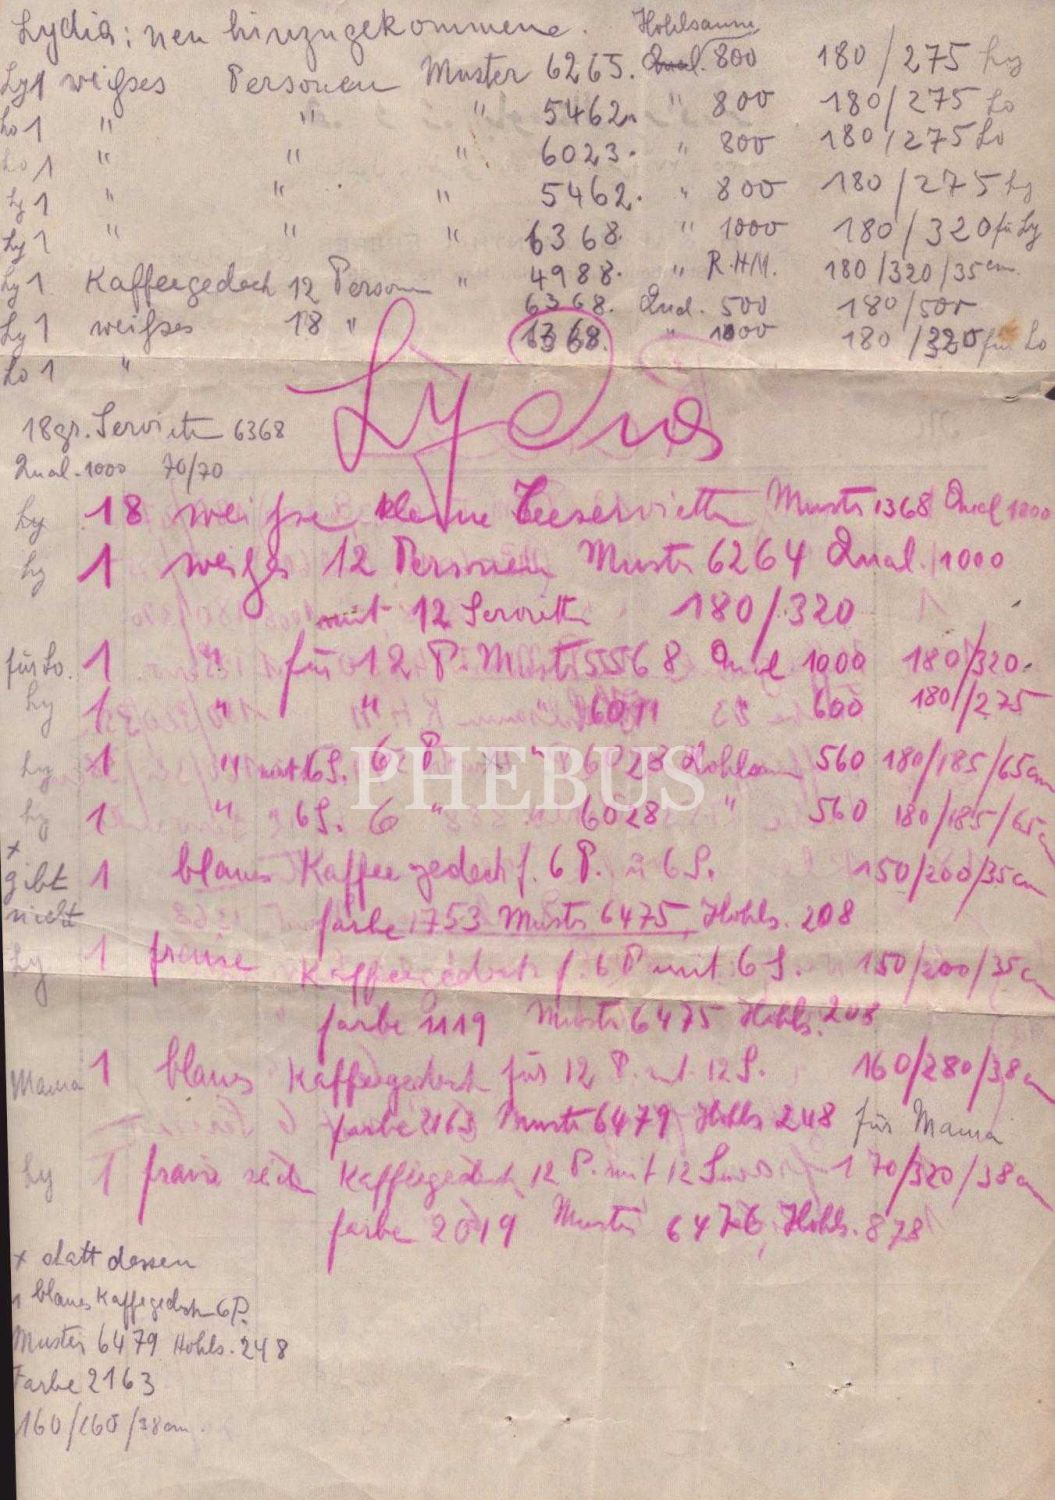 Lydia: neu hinzugekommene.
Hohlsaum
Ly 1 weißes Personen Muster 6265. Qual. 800 180/275 Ly
Lo 1 " " " 5462. " 800 180/275 Lo
Lo 1 " " " 6023. " 800 180/275 Lo
Ly 1 " " " 5462. " 800 180/275 Ly
Ly 1 " " " 6368. " 1000 180/320 für Ly
Ly 1 Kaffeegedeck 12 Person " 4988. " R.H.M. 180/320/35 cm.
Ly 1 weißes 18 " 6368. Qual. 500 180/500
Lo 1 " 1368. " 1000 180/320 für Lo
Lydia
18 gr. Servietten 6368
Qual. 1000 70/70
Ly 18 weiße kleine Teeservietten Muster 1368 Qual 1000
Ly 1 weißes 12 Personen Muster 6264 Qual. 1000
mit 12 Servietten 180/320
für Lo. 1 " für 12 P. Muster 5568 Qual 1000 180/320.
Ly 1 " " " 6011 600 180/275
Ly 1 " mit 6 S. 6 P. " 6023 Hohlsaum 560 180/185/65 cm
Ly 1 " 6 S. 6 " 6028 " 560 180/185/65 cm
x
gibt 1 blaues Kaffeegedeck f. 6 P. 6 S. 150/200/35 cm
nicht farbe 1753 Muster 6475, Hohls. 208
Ly 1 fraise Kaffeegedeck f. 6 P mit 6 S. 150/200/35 cm
farbe 1119 Muster 6475 Hohls. 208
Mama 1 blaues Kaffeegedeck für 12 P. mit 12 S. 160/280/38 cm
farbe 2163 Muster 6479 Hohls 248 für Mama
Ly 1 fraise Kaffeegedeck 12 P. mit 12 170/320/38 cm
farbe 2019 Muster 6476, Hohls. 878
x statt dessen
1 blaues Kaffeegedeck 6 P.
Muster 6479 Hohls. 248
Farbe 2163
160/160/38 cm.
PHEBUS